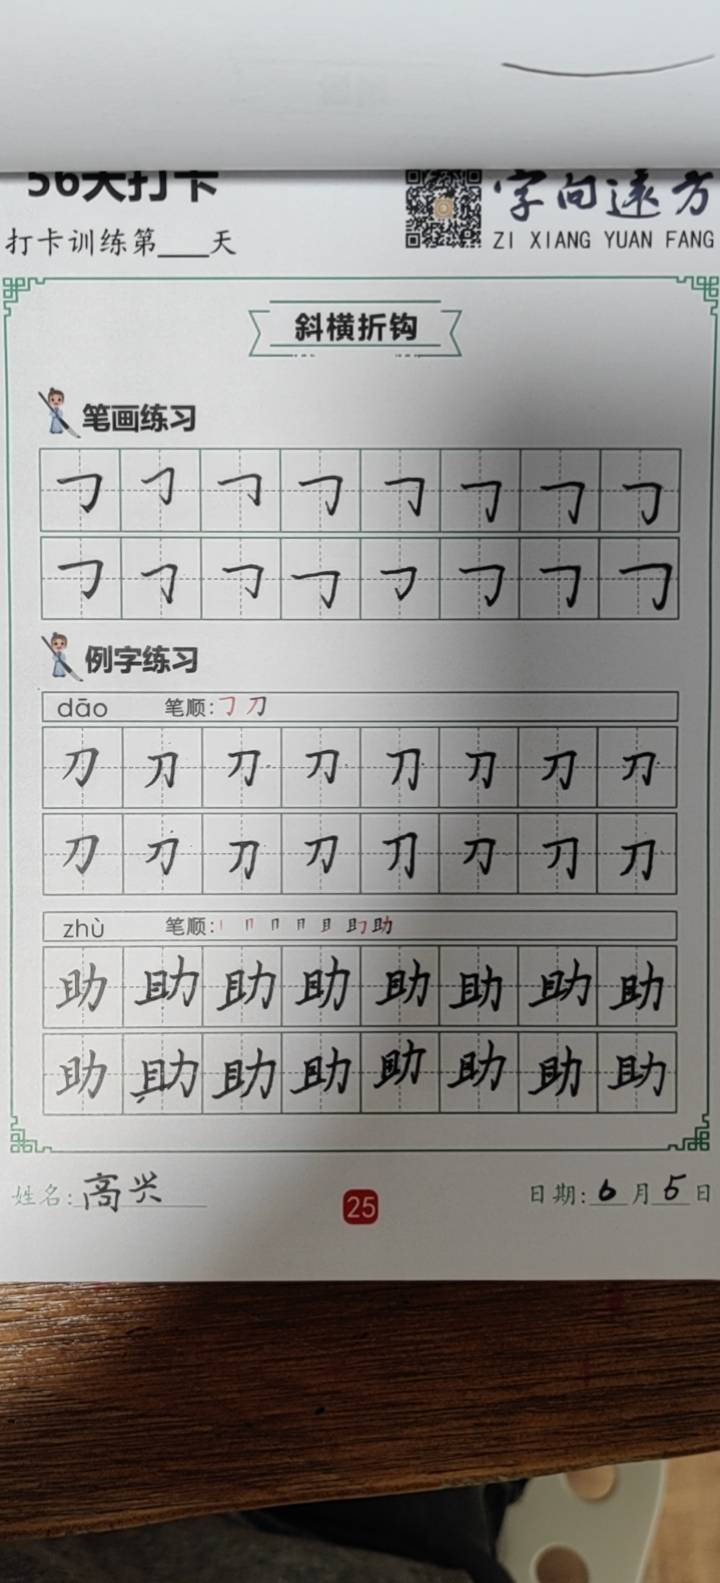 56天打卡
字向远方
打卡训练第___天
ZI XIANG YUAN FANG
斜横折钩
笔画练习
㇆ ㇆ ㇆ ㇆ ㇆ ㇆ ㇆ ㇆
㇆ ㇆ ㇆ ㇆ ㇆ ㇆ ㇆ ㇆
例字练习
dāo 笔顺:㇆刀
刀 刀 刀 刀 刀 刀 刀 刀
刀 刀 刀 刀 刀 刀 刀 刀
zhù 笔顺: 助
助 助 助 助 助 助 助 助
助 助 助 助 助 助 助 助
姓名:高兴
25
日期:6月5日